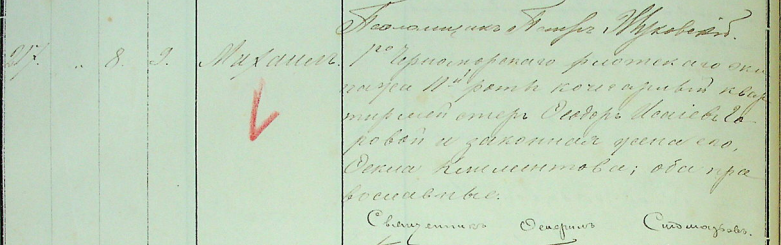 Псаломщикъ Петръ Жуковскій.
217. „ 8. 9. Михаилъ. 1го Черноморскаго флотскаго эки
пажа 11й роты кочегарный квар
тирмейстеръ Ѳеодоръ Исаіевъ
ровой и законная жена его,
Ѳекла Климентова; оба пра
вославные.
Священникъ